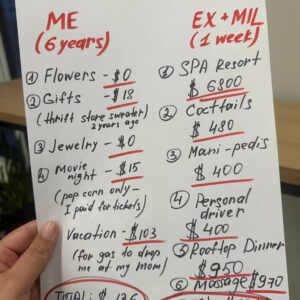 ME
(6 years)
① Flowers - $0
② Gifts - $18
(thrift store sweater)
2 years ago
③ Jewelry - $0
④ Movie
night - $15
(pop corn only -
I paid for tickets)
Vacation - $103
(for gas to drop
me at my mom)
TOTAL: $136
EX + MIL
(1 week)
① SPA Resort
$6800
② Coctails
$480
③ Mani-pedis
$400
④ Personal
driver
$400
⑤ Rooftop Dinner
$950
⑥ Massage $970